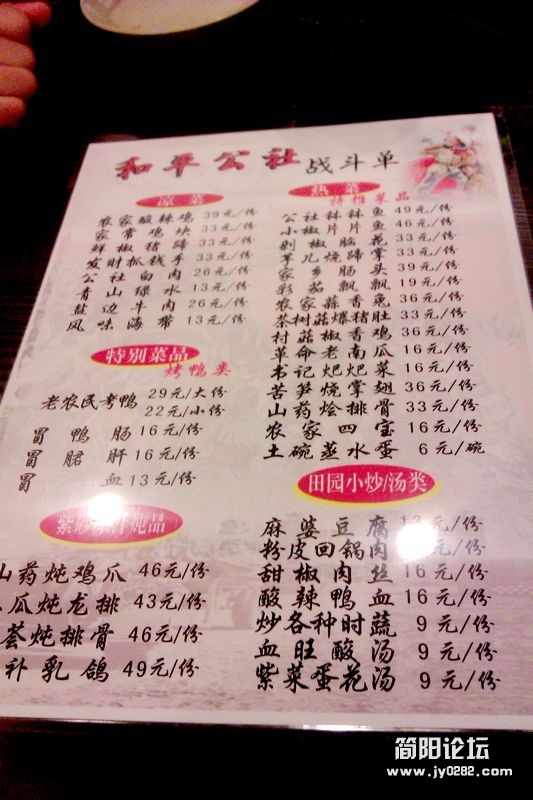 和平公社 战斗单
凉菜
农家酸辣鸡 39元/份
家常鸡块 33元/份
鲜椒猪蹄 33元/份
发财抓钱手 33元/份
公社白肉 26元/份
青山绿水 13元/份
盐边牛肉 26元/份
风味海带 13元/份
特别菜品
烤鸭类
老农民考鸭 29元/大份
22元/小份
冒鸭肠 16元/份
冒腒肝 16元/份
冒血 13元/份
紫砂 炖品
山药炖鸡爪 46元/份
瓜炖龙排 43元/份
荟炖排骨 46元/份
补乳鸽 49元/份
热菜
特推菜品
公社钵钵鱼 49元/份
小椒片片鱼 46元/份
剁椒脑花 33元/份
芋儿烧蹄掌 33元/份
家乡肠头 39元/份
彩茄飘飘 19元/份
农家蒜香兔 36元/份
茶树菇爆猪肚 33元/份
村菇椒香鸡 36元/份
革命老南瓜 16元/份
书记粑粑菜 16元/份
苦笋烧掌翅 36元/份
山药烩排骨 33元/份
农家四宝 16元/份
土碗蒸水蛋 6元/碗
田园小炒/汤类
麻婆豆腐 元/份
粉皮回锅肉 元/份
甜椒肉丝 16元/份
酸辣鸭血 16元/份
炒各种时蔬 9元/份
血旺酸汤 9元/份
紫菜蛋花汤 9元/份
简阳论坛
www.jy0282.com